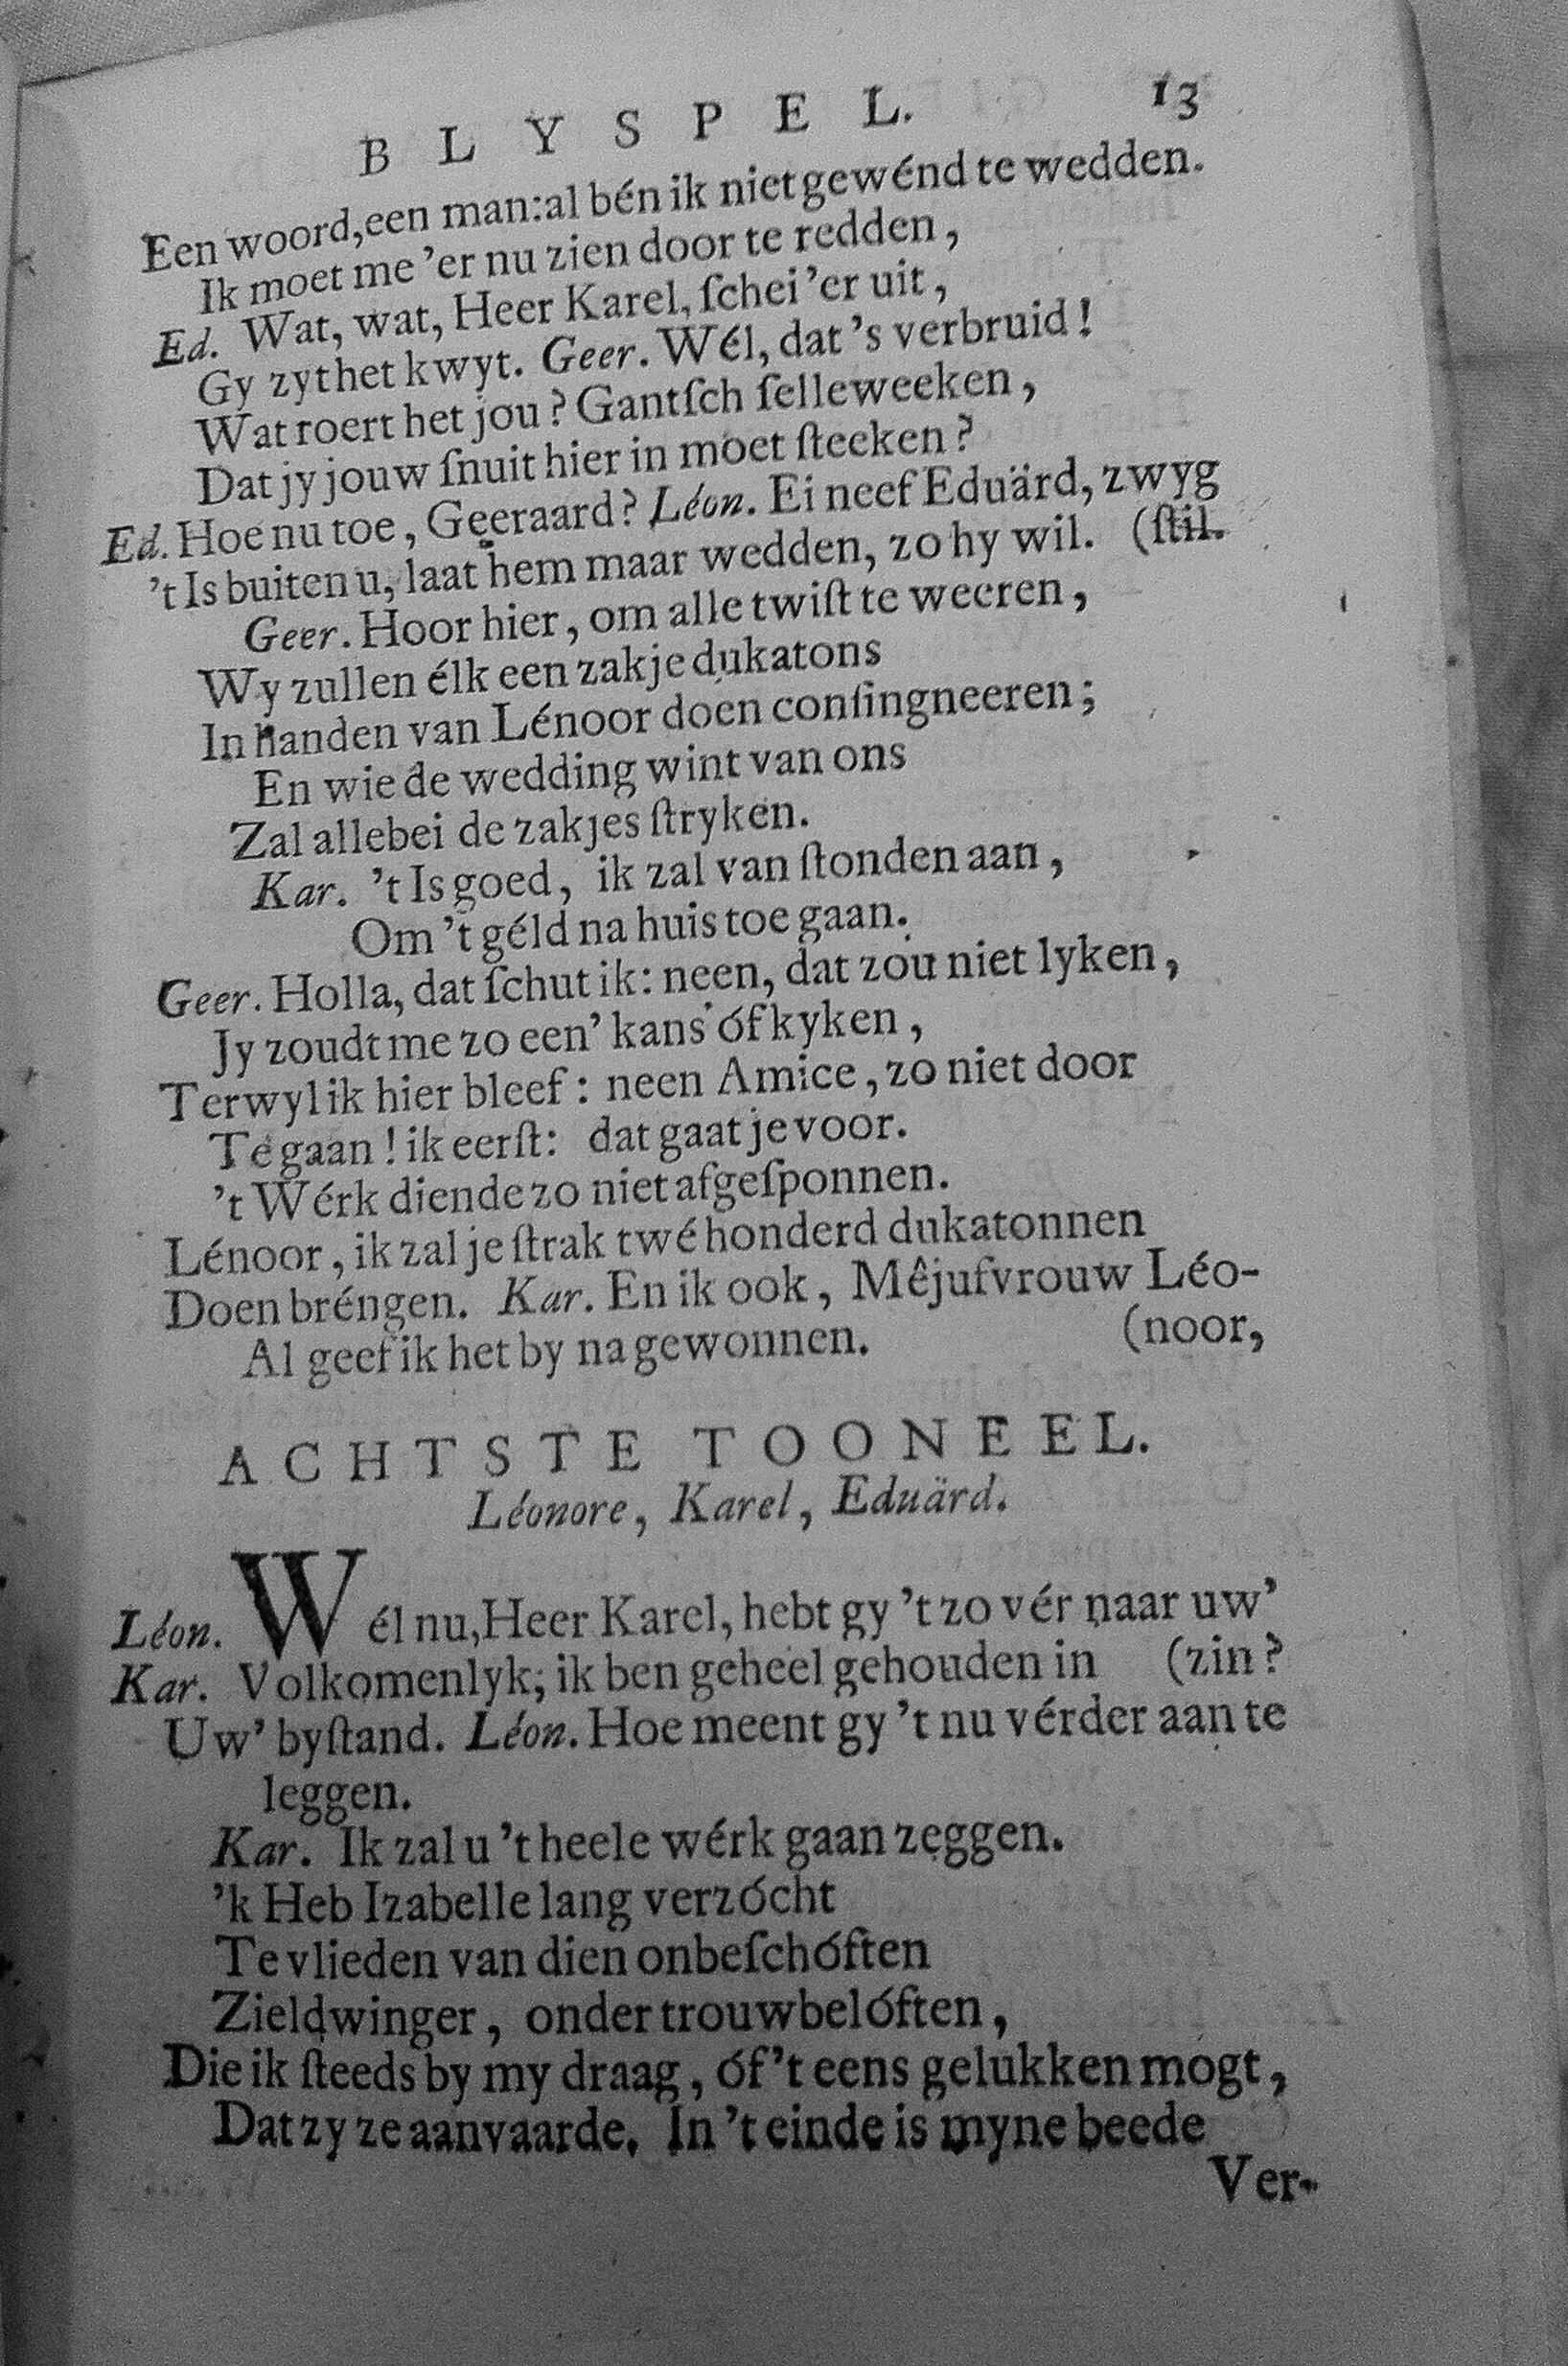 BLYSPEL. 13
Een woord, een man: al bén ik niet gewénd te wedden.
Ik moet me 'er nu zien door te redden,
Ed. Wat, wat, Heer Karel, ſchei 'er uit,
Gy zyt het kwyt. Geer. Wél, dat 's verbruid!
Wat roert het jou? Gantſch ſelleweeken,
Dat jy jouw ſnuit hier in moet ſteeken?
Ed. Hoe nu toe, Geeraard? Léon. Ei neef Eduärd, zwyg
't Is buiten u, laat hem maar wedden, zo hy wil. (ſtil.
Geer. Hoor hier, om alle twiſt te weeren,
Wy zullen élk een zakje dukatons
In handen van Lénoor doen conſingneeren;
En wie de wedding wint van ons
Zal allebei de zakjes ſtryken.
Kar. 't Is goed, ik zal van ſtonden aan,
Om 't géld na huis toe gaan.
Geer. Holla, dat ſchut ik: neen, dat zou niet lyken,
Jy zoudt me zo een' kans óf kyken,
Terwyl ik hier bleef: neen Amice, zo niet door
Te gaan! ik eerſt: dat gaat je voor.
't Wérk diende zo niet afgeſponnen.
Lénoor, ik zal je ſtrak twé honderd dukatonnen
Doen bréngen. Kar. En ik ook, Mêjufvrouw Léo-
Al geef ik het by na gewonnen. (noor,
ACHTSTE TOONEEL.
Léonore, Karel, Eduärd.
Léon. Wél nu, Heer Karel, hebt gy 't zo vér naar uw'
Kar. Volkomenlyk; ik ben geheel gehouden in (zin?
Uw' byſtand. Léon. Hoe meent gy 't nu vérder aan te
leggen.
Kar. Ik zal u 't heele wérk gaan zeggen.
'k Heb Izabelle lang verzócht
Te vlieden van dien onbeſchóften
Zieldwinger, onder trouwbelóften,
Die ik ſteeds by my draag, óf 't eens gelukken mogt,
Dat zy ze aanvaarde. In 't einde is myne beede
Ver-